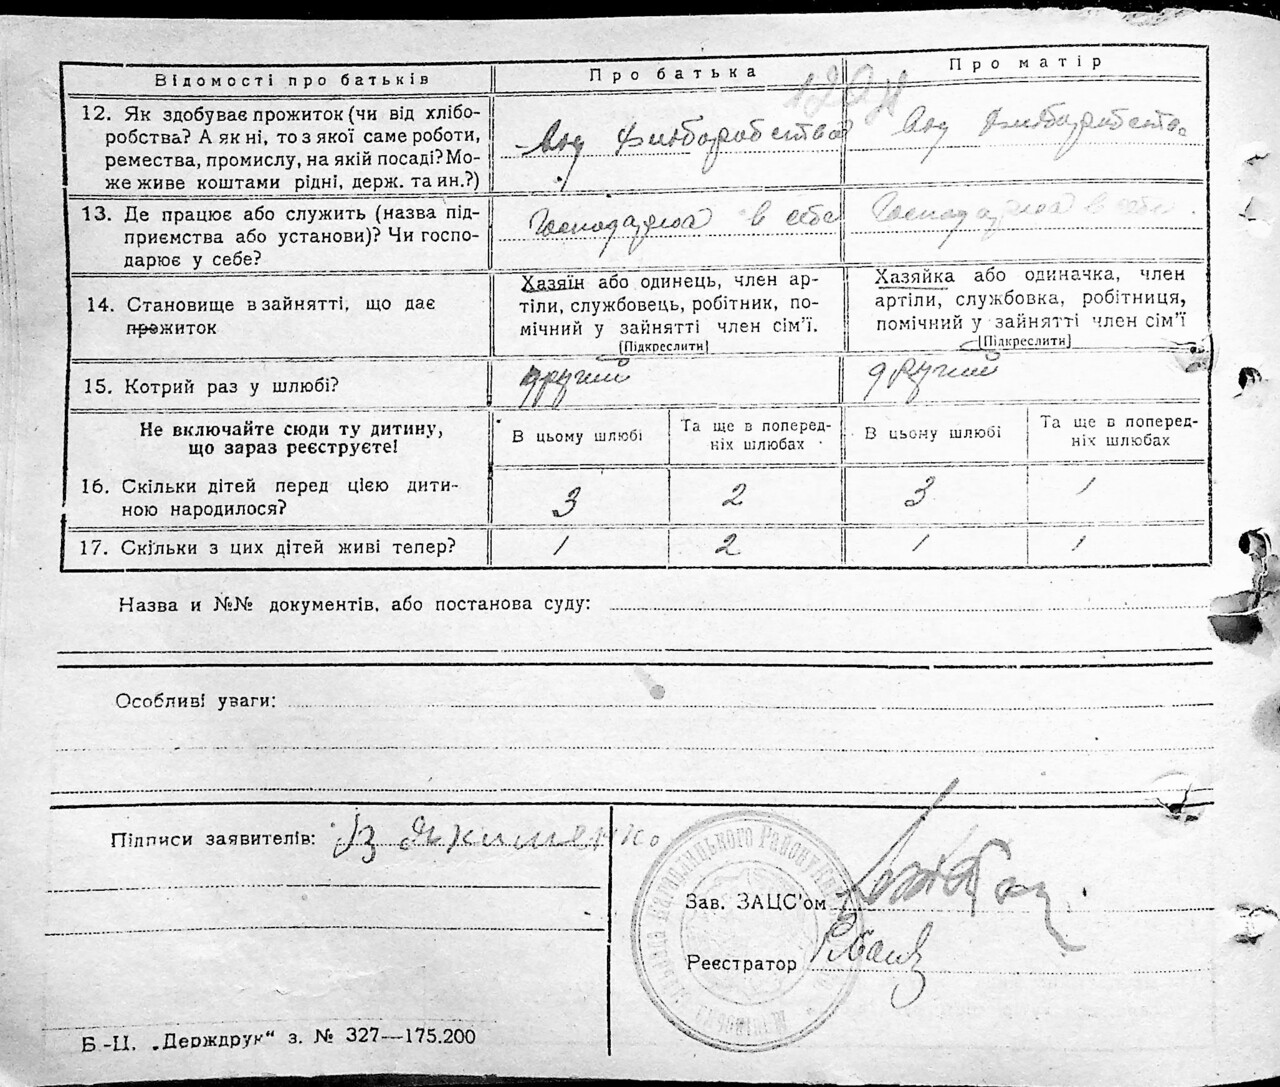 Відомості про батьків
Про батька
Про матір
12. Як здобуває прожиток (чи від хлібо-
робства? А як ні, то з якої саме роботи,
ремества, промислу, на якій посаді? Мо-
же живе коштами рідні, держ. та ин.?)
Від хліборобства
Від хліборобства
13. Де працює або служить (назва під-
приємства або установи)? Чи госпо-
дарює у себе?
Господарює в себе
Господарює в себе
14. Становище в зайнятті, що дає
прожиток
Хазяїн або одинець, член ар-
тіли, службовець, робітник, по-
мічний у зайнятті член сім'ї.
(Підкреслити)
Хазяйка або одиначка, член
артіли, службовка, робітниця,
помічний у зайнятті член сім'ї
(Підкреслити)
15. Котрий раз у шлюбі?
другий
другий
Не включайте сюди ту дитину,
що зараз реєструєте!
В цьому шлюбі
Та ще в поперед-
ніх шлюбах
В цьому шлюбі
Та ще в поперед-
ніх шлюбах
16. Скільки дітей перед цією дити-
ною народилося?
3
2
3
1
17. Скільки з цих дітей живі тепер?
1
2
1
1
Назва и №№ документів, або постанова суду:
Особливі уваги:
Підписи заявителів:
Якименко
Зав. ЗАЦС'ом
Реєстратор
Б.-Ц. „Держдрук“ з. № 327—175.200